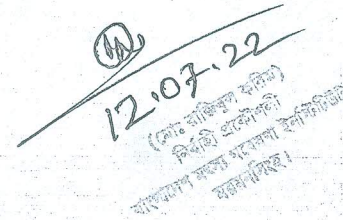 12.07.22
(মোঃ রাজিবুল করিম)
নির্বাহী প্রকৌশলী
বাংলাদেশ মৎস্য গবেষণা ইনস্টিটিউট
ময়মনসিংহ।